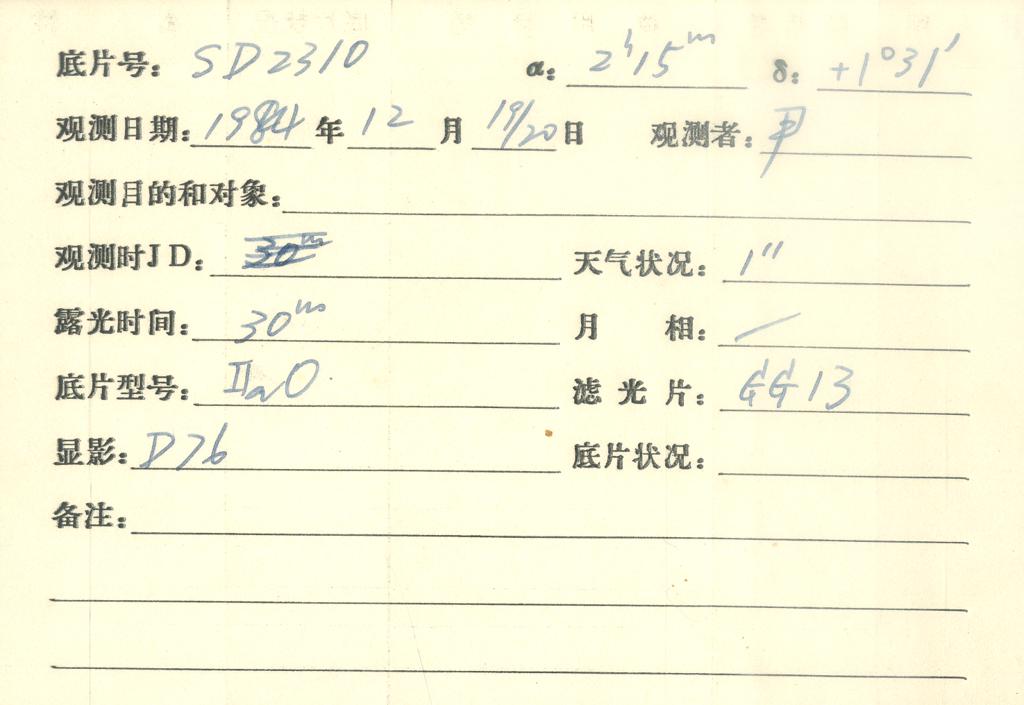 底片号: SD2310 α: 2ʰ15ᵐ δ: +1°31′
观测日期: 1984 年 12 月 19/20 日 观测者:
观测目的和对象:
观测时JD: 30ᵐ 天气状况: 1″
露光时间: 30ᵐ 月 相: 一
底片型号: IIaO 滤光片: GG13
显影: D76 底片状况:
备注: